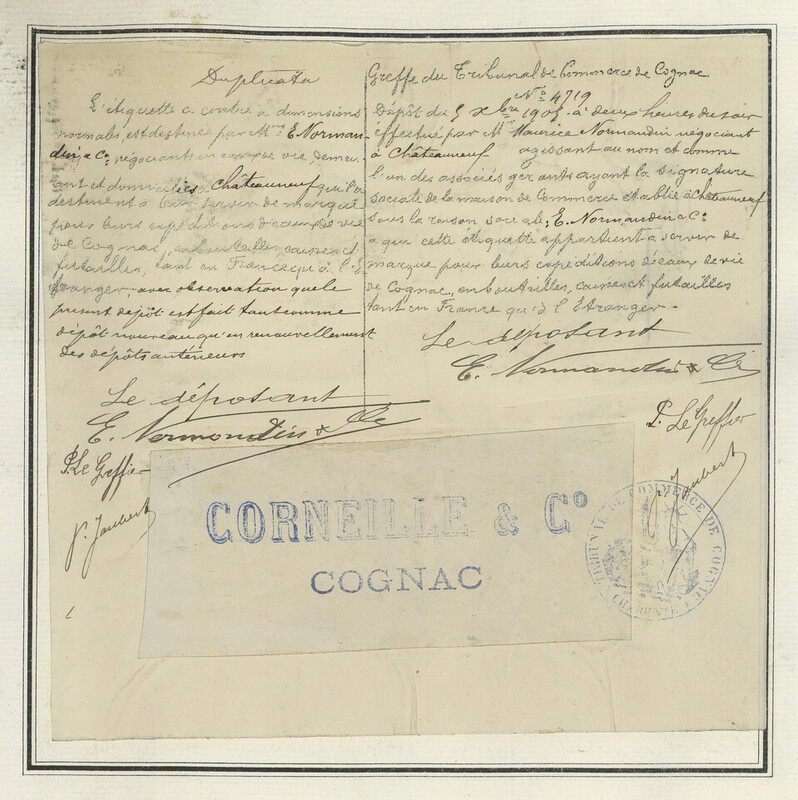 Duplicata
L'étiquette ci contre à dimensions
normales, est destinée par M.rs E. Norman-
din & Cie négociants en eaux de vie demeu-
rant et domiciliés à Châteauneuf qu'ils
destinent à leur servir de marque
pour leurs expéditions d'eaux de vie
de Cognac, en bouteilles, caisses et
futailles, tant en France qu'à l'E-
tranger, avec observation que le
présent dépôt est fait tant comme
dépôt nouveau qu'en renouvellement
des dépôts antérieurs
Le déposant
E. Normandin & Cie
P. Le Greffier
P. Jaubert
Greffe du Tribunal de Commerce de Cognac
N° 4719
Dépôt du 5 Xbre 1905 à deux heures du soir
effectué par Mr Maurice Normandin négociant
à Châteauneuf agissant au nom et comme
l'un des associés gérants ayant la signature
sociale de la maison de Commerce établie à Châteauneuf
sous la raison sociale E. Normandin & Cie
à qui cette étiquette appartient à servir de
marque pour leurs expéditions d'eaux de vie
de Cognac, en bouteilles, caisses et futailles
tant en France qu'à l'Etranger.
Le déposant
E. Normandin & Cie
P. Le Greffier
P. Jaubert
CORNEILLE & Co
COGNAC
TRIBUNAL DE COMMERCE DE COGNAC
CHARENTE